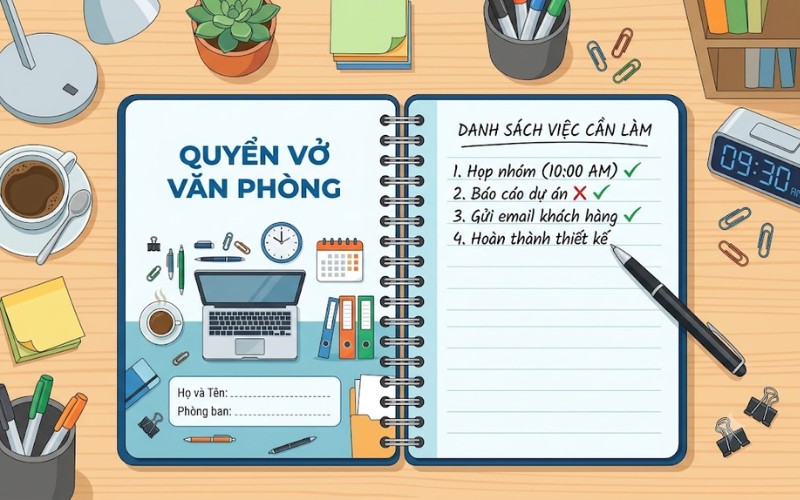 QUYỂN VỞ
VĂN PHÒNG
Họ và Tên:
Phòng ban:
DANH SÁCH VIỆC CẦN LÀM
1. Họp nhóm (10:00 AM) ✓
2. Báo cáo dự án ✗ ✓
3. Gửi email khách hàng ✓
4. Hoàn thành thiết kế
09:30 AM